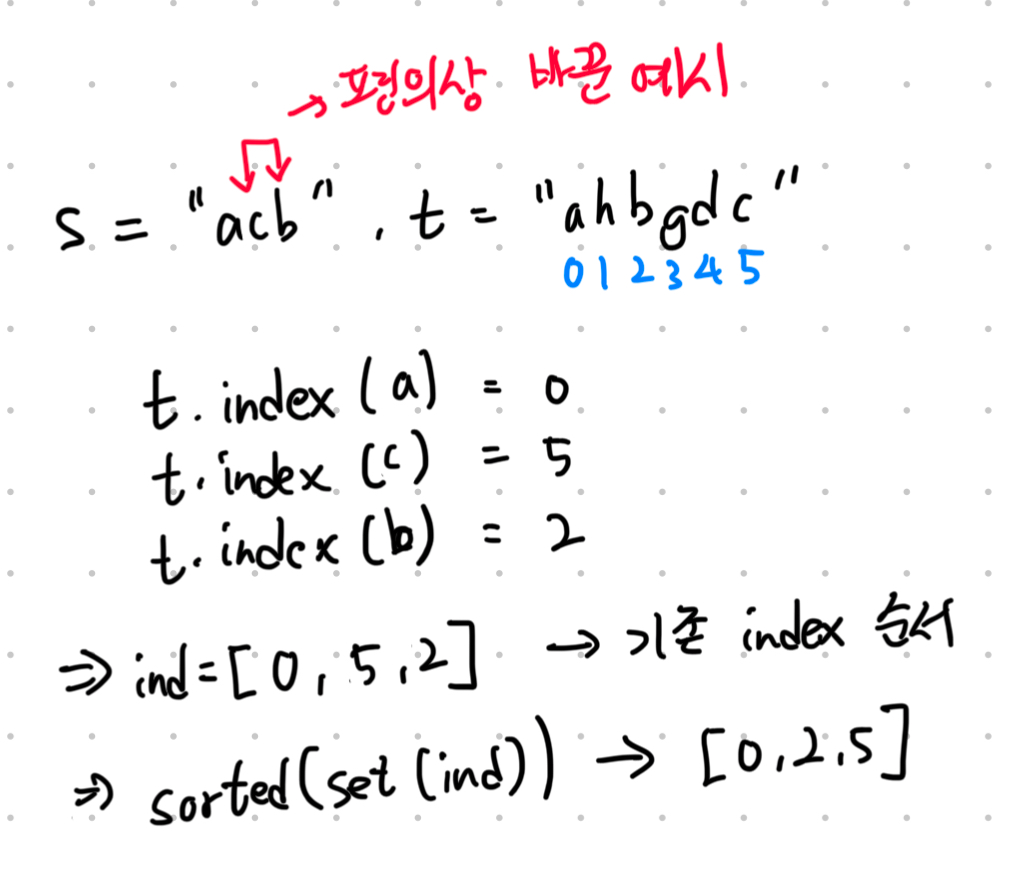 → 편의상 바꾼 예시
s = "acb" , t = "ahbgdc"
0 1 2 3 4 5
t.index(a) = 0
t.index(c) = 5
t.index(b) = 2
⇒ ind=[0,5,2] → 기존 index 순서
⇒ sorted(set(ind)) → [0,2,5]